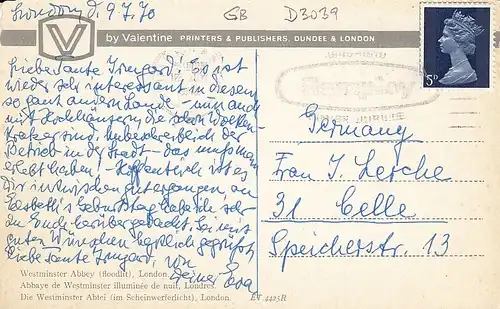 London d. 9.7.70
GB D3039
by Valentine PRINTERS & PUBLISHERS, DUNDEE & LONDON
V
5D
Liebe Tante Irmgard! Es ist
wieder sehr interessant in diesem
so ganz andern Lande – nun auch
mit Hochhäusern die schon Wolken-
kratzer sind. Unbeschreiblich der
Betrieb in der Stadt – das muß man
erlebt haben! – Hoffentlich ist es
Dir inzwischen gut ergangen an
Lisbeth's Geburtstag habe ich sehr
an Euch herübergedacht. Sei mit
guten Wünschen herzlich gegrüßt
liebe Tante Irmgard, von
Deiner Eva
Germany
Frau I. Lerche
31 Celle
Speicherstr. 13
Westminster Abbey (floodlit), London.
Abbaye de Westminster illuminée de nuit, Londres.
Die Westminster Abtei (im Scheinwerferlicht), London.